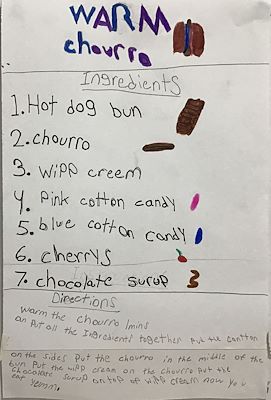 WARM
chourro
Ingredients
1. Hot dog bun
2. chourro
3. wipp creem
4. Pink cotton candy
5. blue cotton candy
6. cherrys
7. chocolate surup
Directions
warm the chourro 1mins
an Put all the Ingredients together Put the cantton
on the sides Put the chourro in the middle of the
bun Put the wipp cream on the chourro Put the
chocalare surup on top of wipp cream now you
eat yemm.